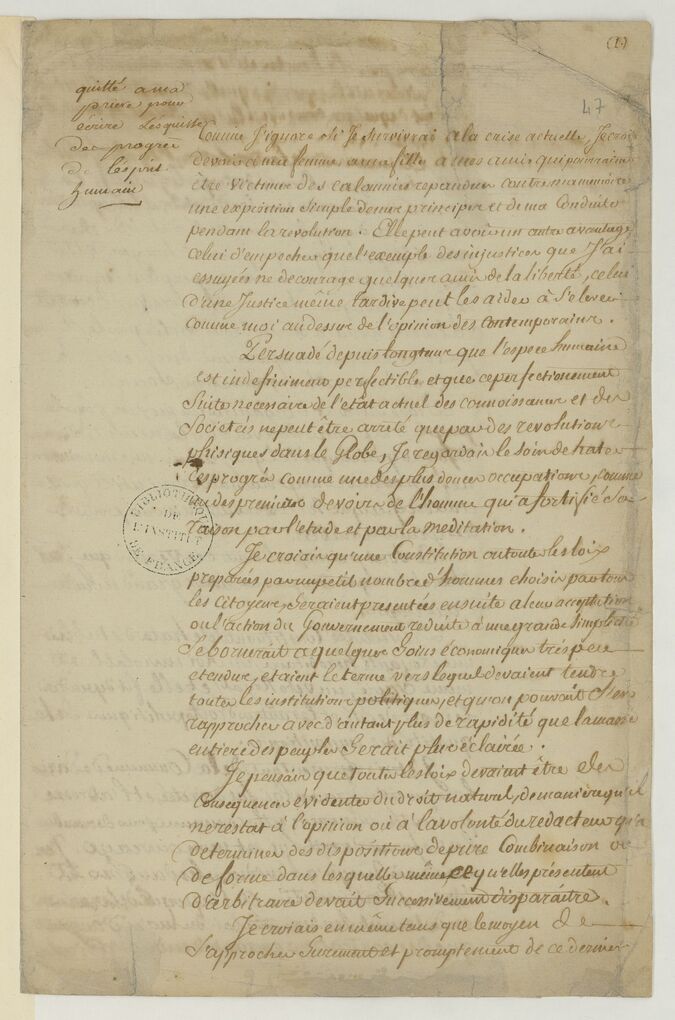 (1.)
47
quitté a ma
prière pour
écrire L'esquisse
des progrès
de L'esprit
humain
Comme J'ignore si Je survivrai a la crise actuelle, Je crois
devoir a ma femme, a ma fille a mes amis qui pourraient
être victimes des calomnies repandues contre ma mémoire
une exposition simple de mes principes et de ma Conduite
pendant la révolution. Elle peut avoir un autre avantage
celui d'empecher que l'exemple des injustices que J'ai
essuyées ne decourage quelques amis de la liberté, celui
d'une Justice même tardive peut les aider à S'elever
comme moi au dessus de l'opinion des contemporains.
Persuadé depuis longtems que l'espece humaine
est indefiniment perfectible et que ce perfectionement
Suite necessaire de l'etât actuel des connoissances et des
Societés ne peut être arreté que par des revolutions
phisiques dans le Globe, Je regardais le soin de hater
les progrès comme une des plus douces occupations, comme
un des premiers devoirs de l'homme qui a fortifié sa
raison par l'etude et par la meditation.
BIBLIOTHEQUE
DE
L'INSTITUT
DE FRANCE
Je croiais qu'une Constitution ou toutes les loix
preparées par un petit nombre d'hommes choisis par tous
les Citoyens, Seraient presentées ensuite a leur acceptation
ou l'action du Gouvernement reduite à une grande Simplicité
Se bornerait a quelques Soins économiques très peu
etendus, etaient le terme vers lequel devaient tendre
toutes les institutions politiques, et qu'on pouvait S'en
rapprocher avec d'autant plus de rapidité que la masse
entiere des peuples Serait plus éclairée.
Je pensais que toutes les loix devaient être des
Consequences évidentes du droit naturel, de maniere qu'il
ne restat à l'opinion où à la volonté du redacteur qu'à
determiner des dispositions de pure Combinaison ou
de forme dans les quelles même ce qu'elles présentent
d'arbitraire devait Successivement disparaitre.
Je croiais en même tems que le moyen de
S'approcher Surement et promptement de ce dernier